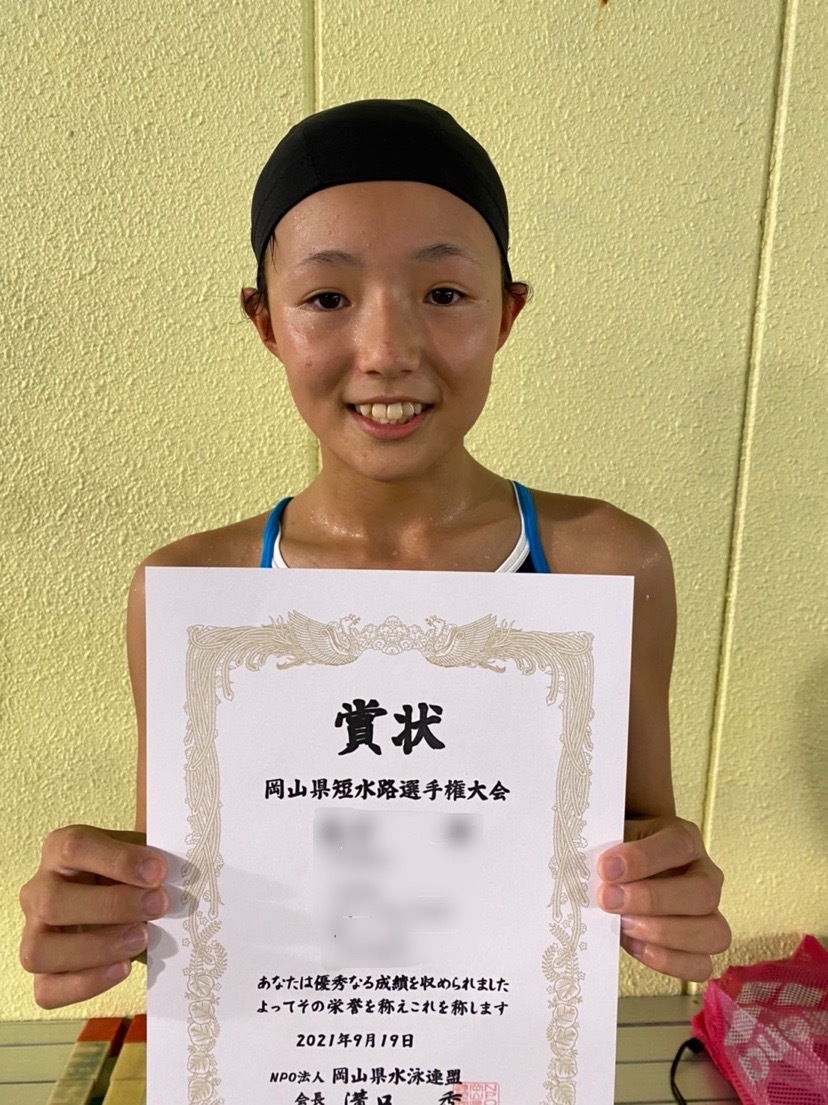 賞状
岡山県短水路選手権大会
あなたは優秀なる成績を収められました
よってその栄誉を称えこれを称します
2021年9月19日
NPO法人 岡山県水泳連盟
会長 溝口